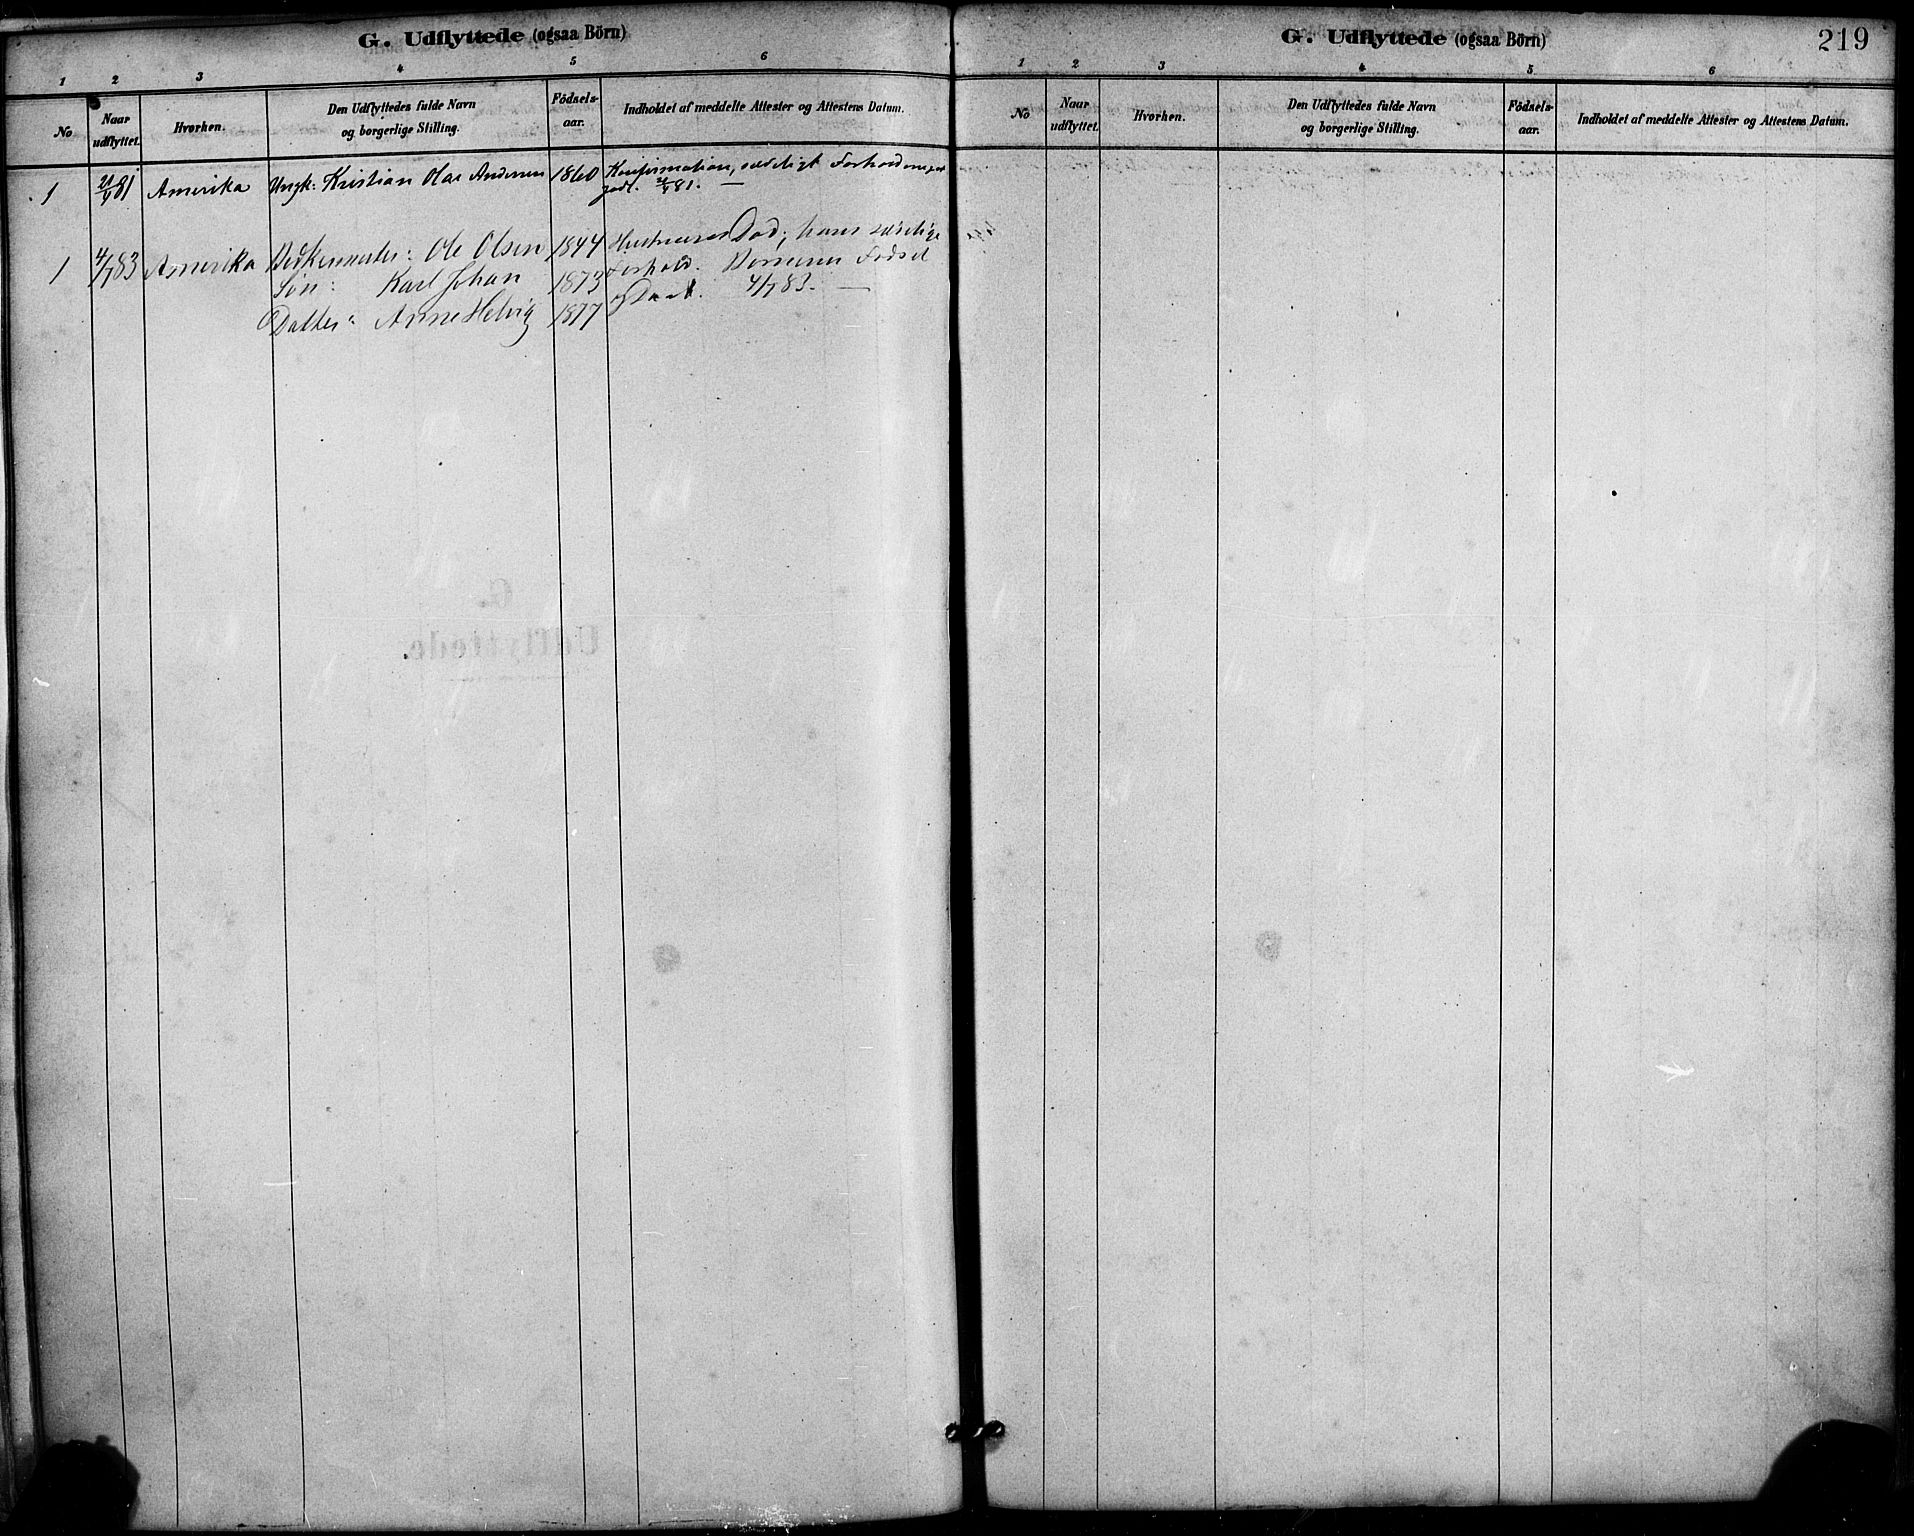 G. Udflyttede (ogsaa Börn)
1 2 3 4 5 6
No
Naar udflyttet.
Hvorhen.
Den Udflyttedes fulde Navn
og borgerlige Stilling.
Födsels-
aar.
Indholdet af meddelte Attester og Attestens Datum.
1 81 Amerika Ungk: Kristian Olai Andersen 1860 Konfirmation, sædeligt Forhold
godt. 81. —
1 4/7 83 Amerika Ole Olsen 1844 Hustrues Død; hans sædelige
Søn: Karl Johan 1873 Forhold. Børnenes Fødsel
Datter: Anne Helvig 1877 og Daab. 4/7 83. —
G. Udflyttede (ogsaa Börn)
219
1 2 3 4 5 6
No
Naar
udflyttet.
Hvorhen.
Den Udflyttedes fulde Navn
og borgerlige Stilling.
Födsels-
aar.
Indholdet af meddelte Attester og Attestens Datum.
G.
Udflyttede.